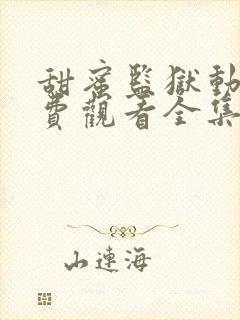 甜蜜監獄動
費觀看全集
山連海